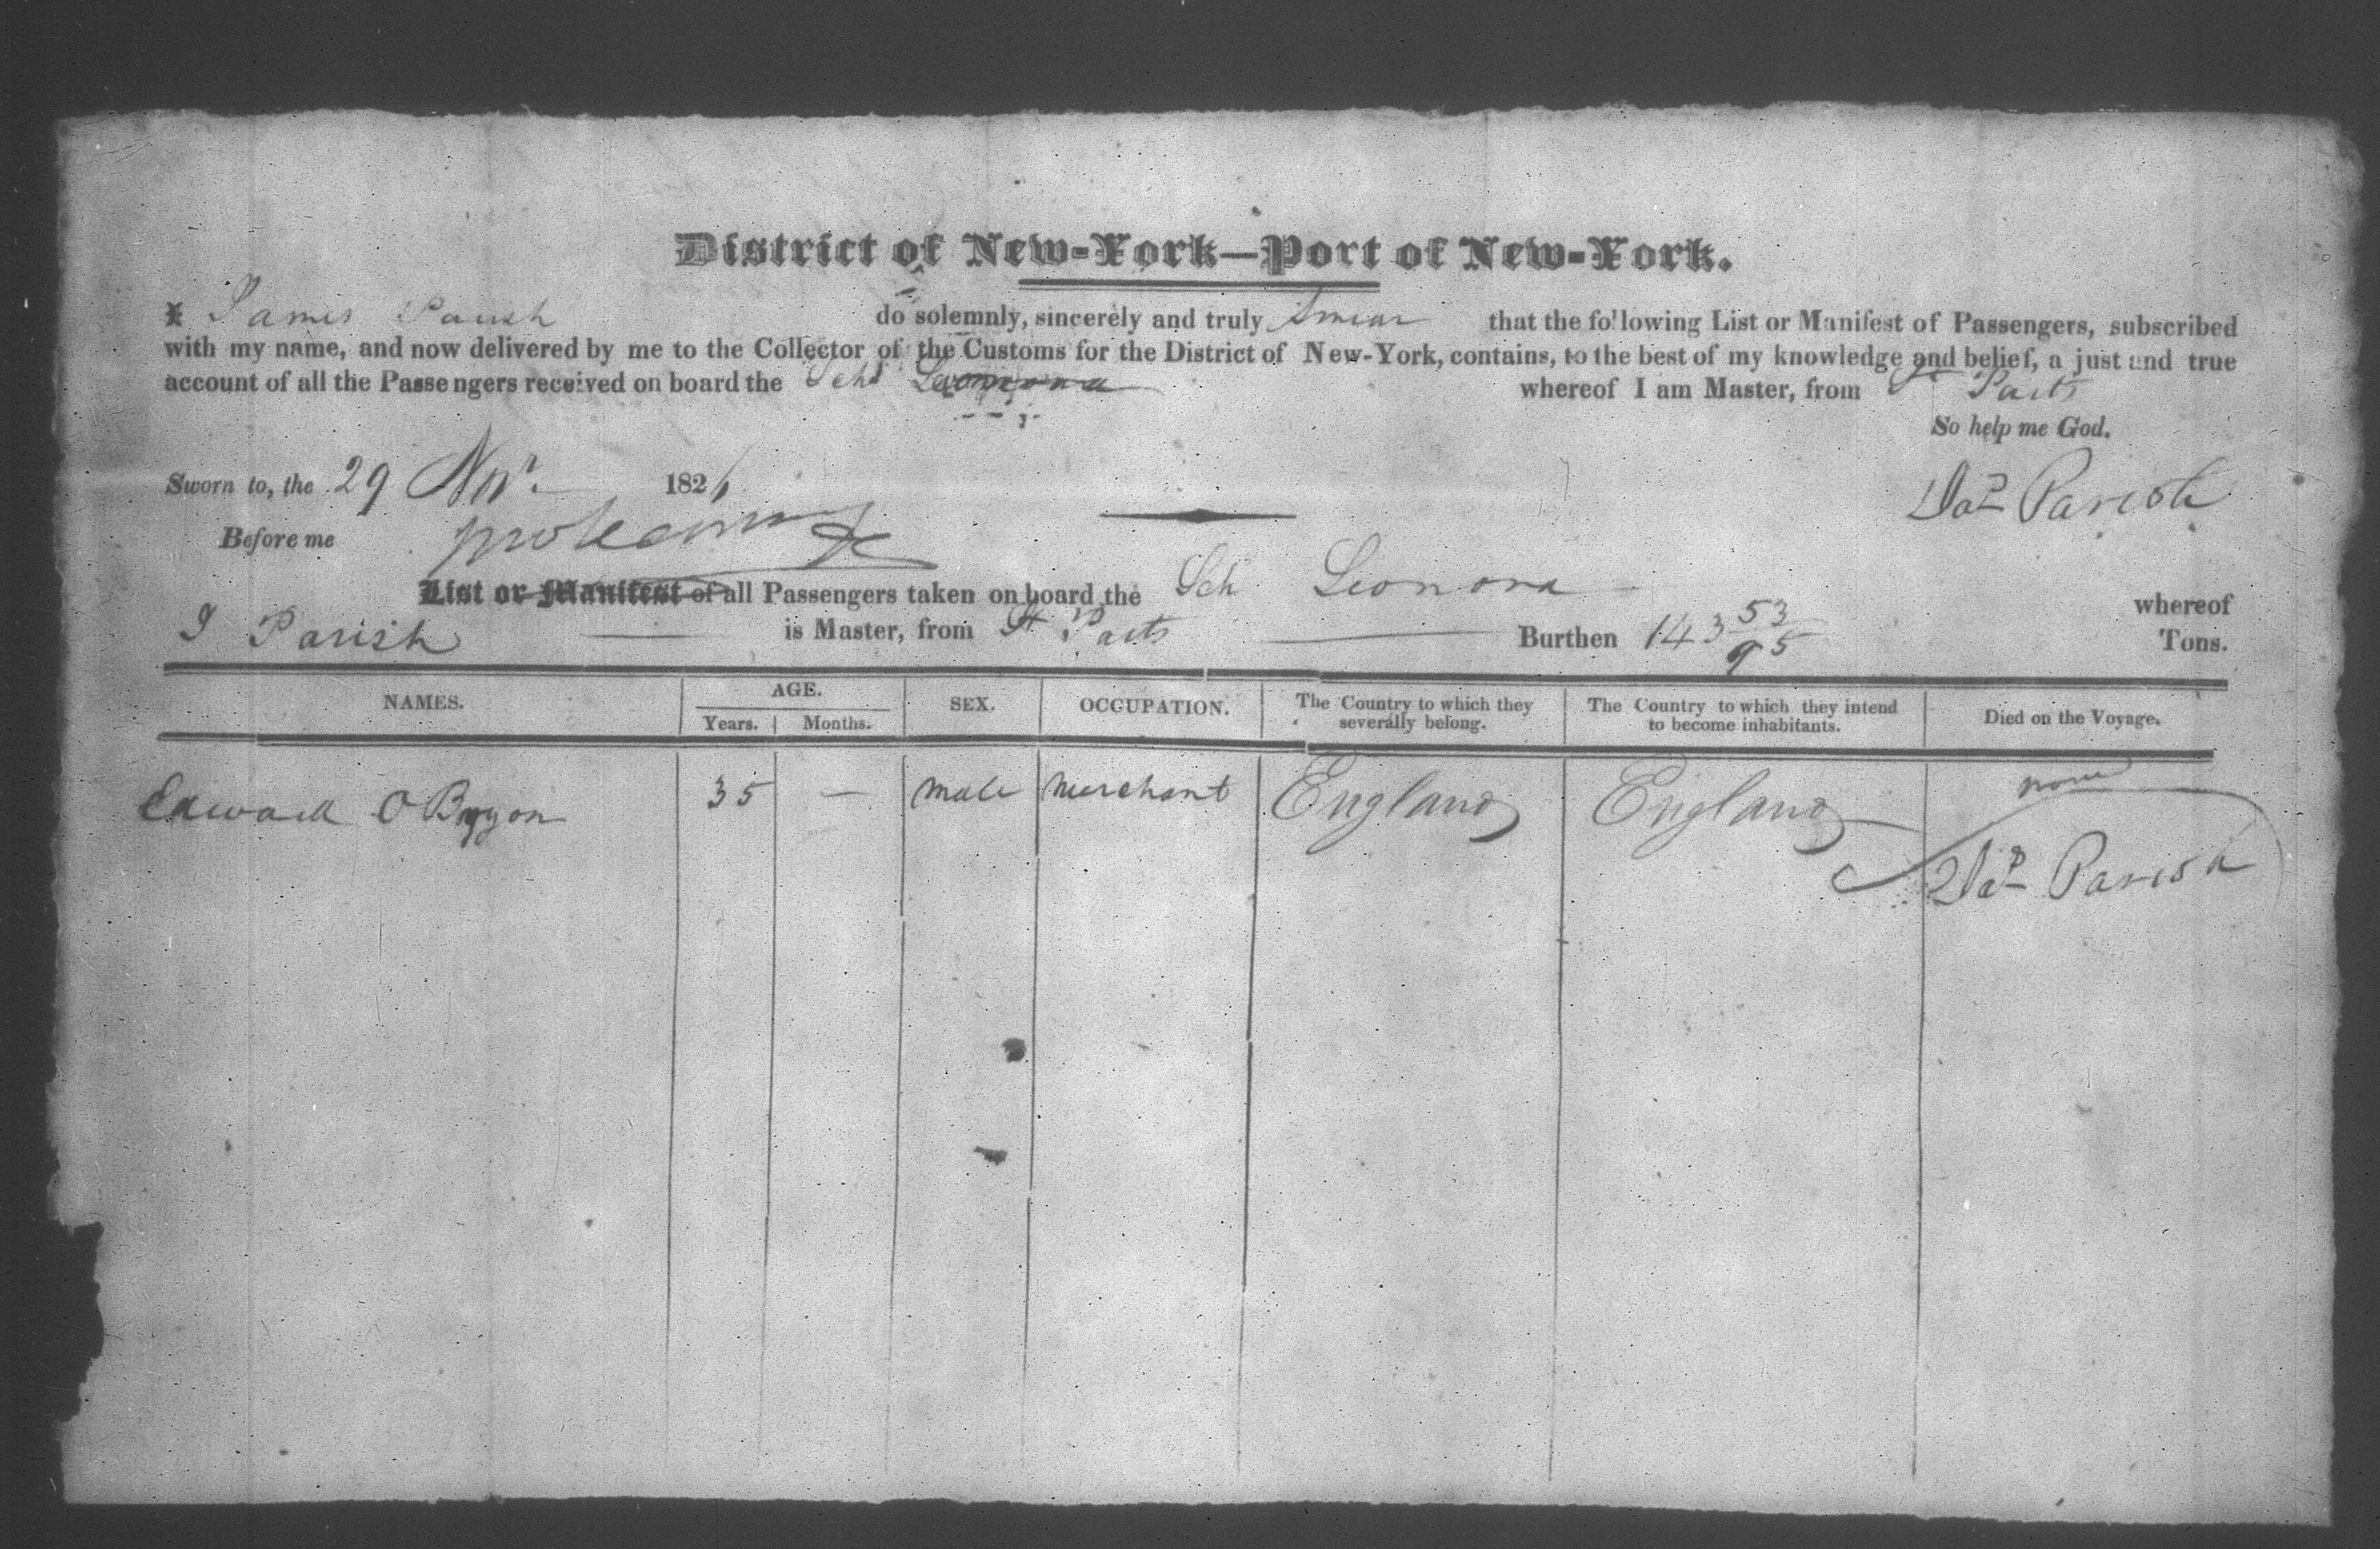 District of New-York—Port of New-York.
I James Parish do solemnly, sincerely and truly Swear that the following List or Manifest of Passengers, subscribed
with my name, and now delivered by me to the Collector of the Customs for the District of New-York, contains, to the best of my knowledge and belief, a just and true
account of all the Passengers received on board the Schr Leonora whereof I am Master, from St Barts
So help me God.
Sworn to, the 29 Novr 1826
Jas Parish
Before me
List or Manifest of all Passengers taken on board the Sch Leonora whereof
J Parish is Master, from St Barts Burthen 143 53/95 Tons.
NAMES. AGE. SEX. OCCUPATION. The Country to which they severally belong. The Country to which they intend to become inhabitants. Died on the Voyage.
Years. Months.
Edward O Bryon 35 — male merchant England England none
Jas Parish